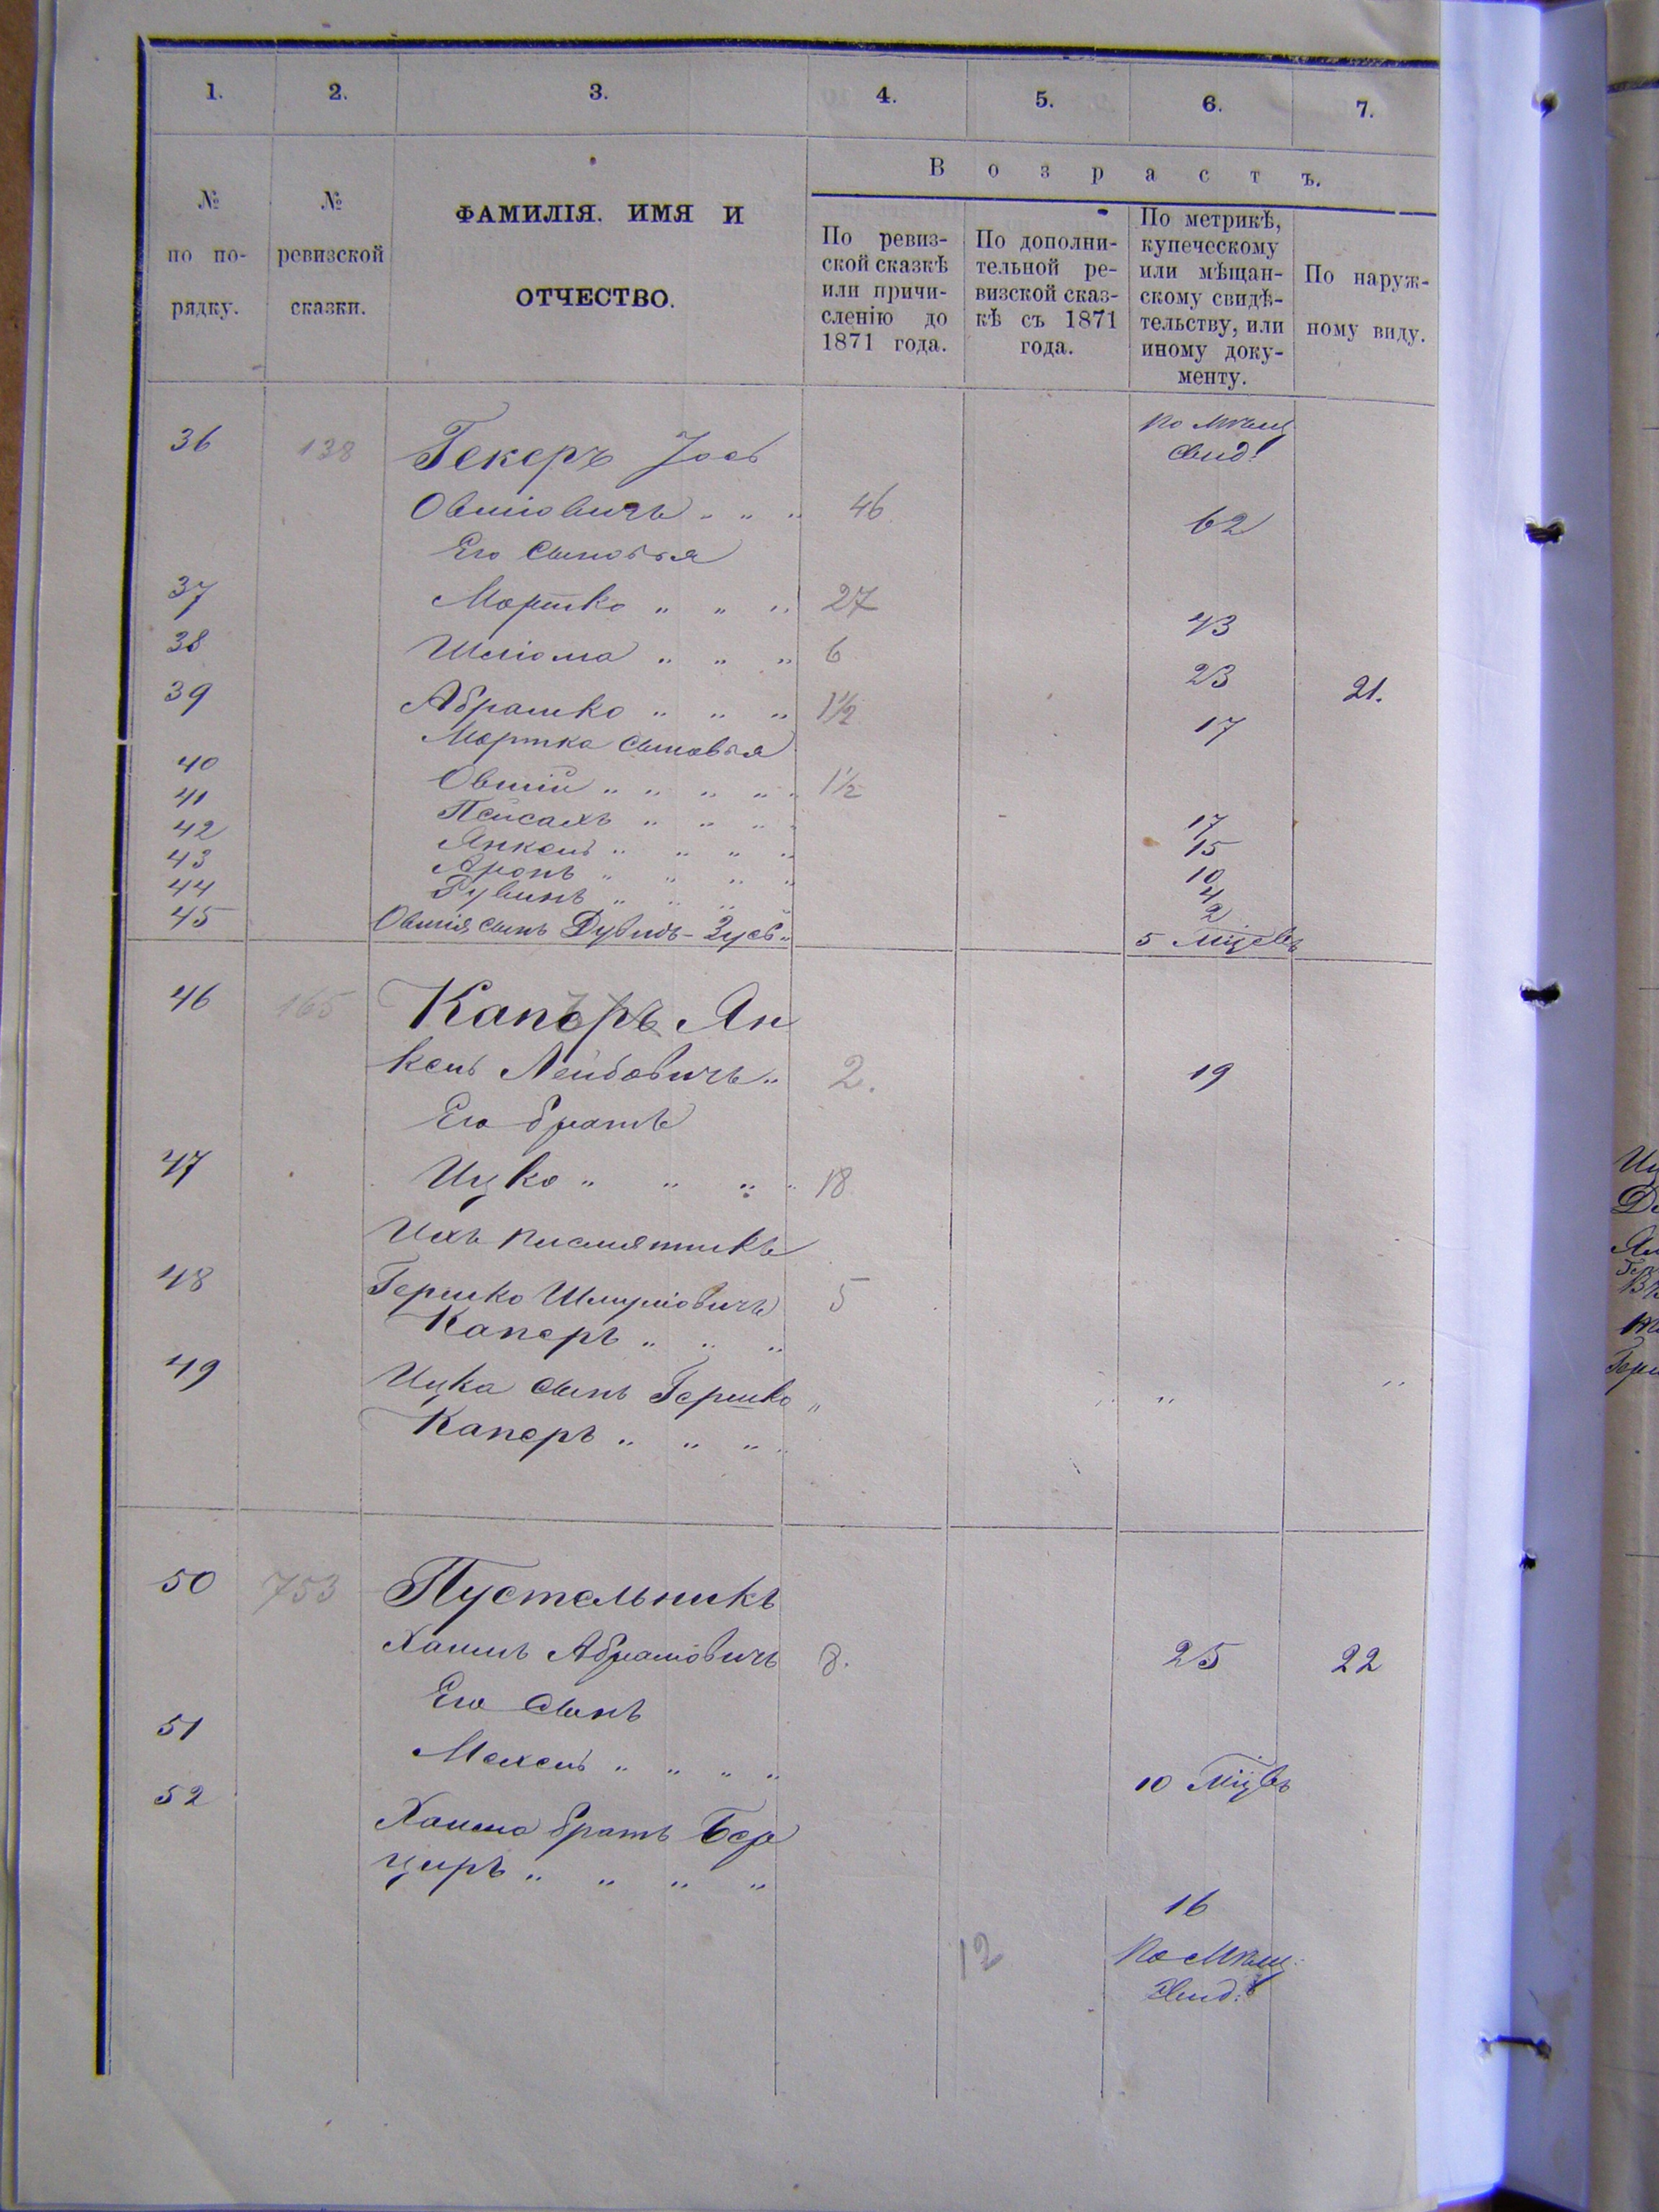 1. 2. 3. 4. 5. 6. 7.
№ по порядку.
№ ревизской сказки.
ФАМИЛІЯ. ИМЯ И ОТЧЕСТВО.
Возрастъ.
По ревиз-
ской сказкѣ
или причи-
сленію до
1871 года.
По дополни-
тельной ре-
визской сказ-
кѣ съ 1871
года.
По метрикѣ,
купеческому
или мѣщан-
скому свидѣ-
тельству, или
иному доку-
менту.
По наруж-
ному виду.
По Мѣщ
свид:
36 138 Гекеръ Іось
Овшіовичъ " " " 46 62
Его сыновья
37 Мортко " " " 27 43
38 Шліома " " " 6 23 21.
39 Абрамко " " " 1½ 17
Мортка сыновья
40 Овшій " " " " " 1½ 17
41 Пейсахъ " " " " 15
42 Янкель " " " " 10
43 Аронъ " " " " 4
44 Рувинъ " " " " 2
45 Овшія сынъ Дувидъ-Зусь " 5 Міцевъ
46 165 Каперъ Ян
кель Лейбовичъ " 2. 19
Его братъ
47 Ицко " " " " 18
Ихъ
48 Гершко Шмуліовичъ 5
Каперъ " " "
49 Ицка сынъ Гершко " " "
Каперъ " " " "
50 753 Пустельникъ
Хаимъ Абрамовичъ 8. 25 22
Его сынъ
51 Мехель " " " " 10 Міцвъ
52 Хаима братъ Бер
циръ " " " " 16
12 По Мѣщ:
свид: